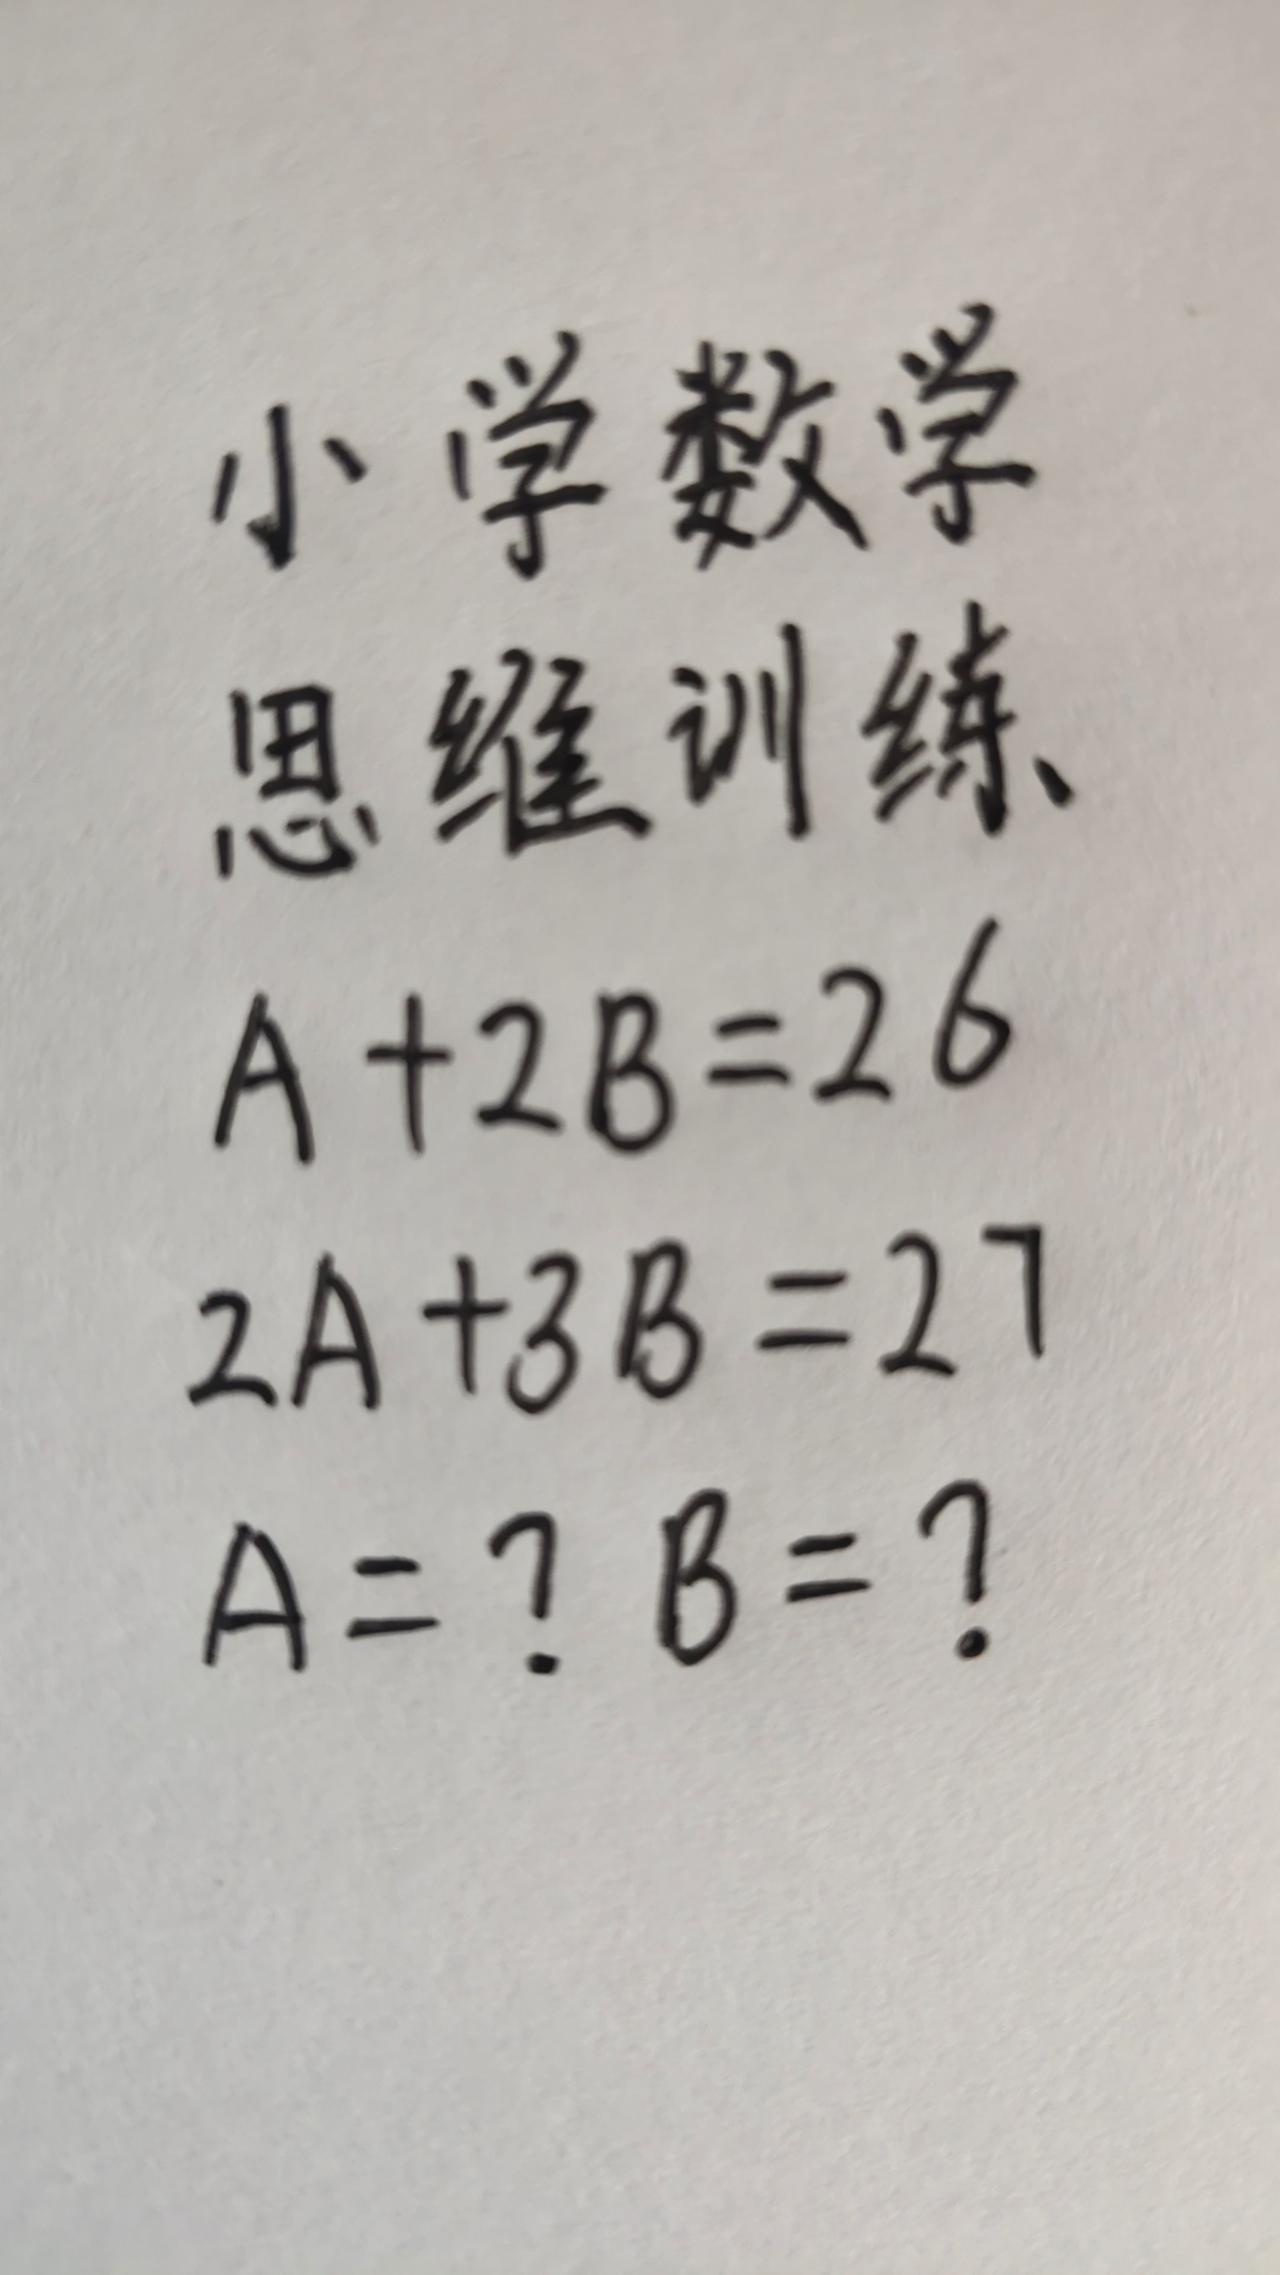 小学数学
思维训练
A+2B=26
2A+3B=27
A=? B=?